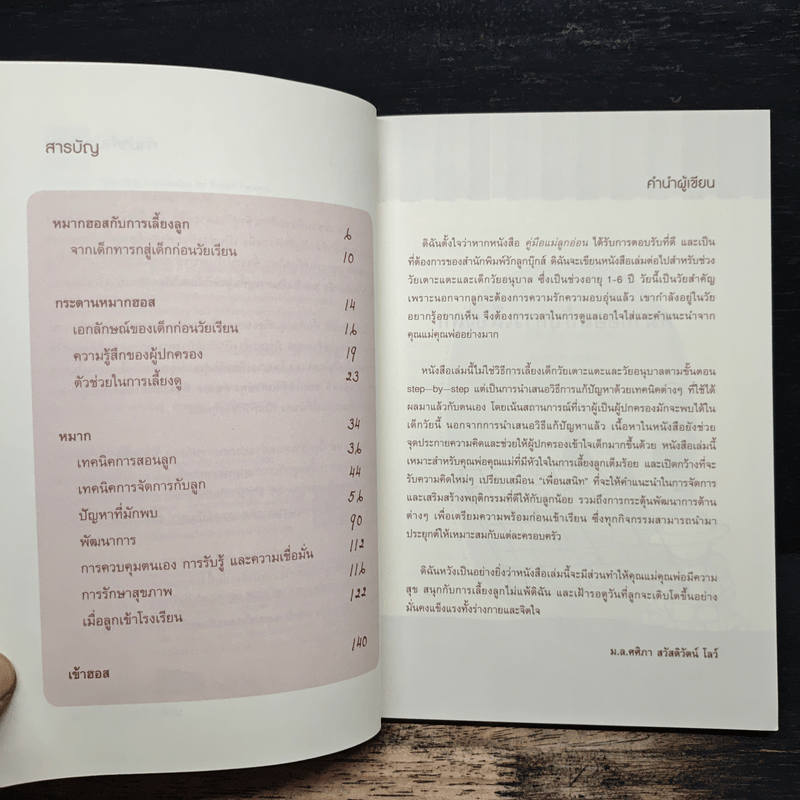 สารบัญ
หมากฮอสกับการเลี้ยงลูก 6
จากเด็กทารกสู่เด็กก่อนวัยเรียน 10
กระดานหมากฮอส 14
เอกลักษณ์ของเด็กก่อนวัยเรียน 16
ความรู้สึกของผู้ปกครอง 19
ตัวช่วยในการเลี้ยงดู 23
หมาก 34
เทคนิคการสอนลูก 36
เทคนิคการจัดการกับลูก 44
ปัญหาที่มักพบ 56
พัฒนาการ 90
การควบคุมตนเอง การรับรู้ และความเชื่อมั่น 112
การรักษาสุขภาพ 116
เมื่อลูกเข้าโรงเรียน 122
เข้าฮอส 140
คำนำผู้เขียน
ดิฉันตั้งใจว่าหากหนังสือ คู่มือแม่ลูกอ่อน ได้รับการตอบรับที่ดี และเป็น
ที่ต้องการของสำนักพิมพ์รักลูกบุ๊กส์ ดิฉันจะเขียนหนังสือเล่มต่อไปสำหรับช่วง
วัยเตาะแตะและเด็กวัยอนุบาล ซึ่งเป็นช่วงอายุ 1-6 ปี วัยนี้เป็นวัยสำคัญ
เพราะนอกจากลูกจะต้องการความรักความอบอุ่นแล้ว เขากำลังอยู่ในวัย
อยากรู้อยากเห็น จึงต้องการเวลาในการดูแลเอาใจใส่และคำแนะนำจาก
คุณแม่คุณพ่ออย่างมาก
หนังสือเล่มนี้ไม่ใช่วิธีการเลี้ยงเด็กวัยเตาะแตะและวัยอนุบาลตามขั้นตอน
step-by-step แต่เป็นการนำเสนอวิธีการแก้ปัญหาด้วยเทคนิคต่างๆ ที่ใช้ได้
ผลมาแล้วกับตนเอง โดยเน้นสถานการณ์ที่เราผู้เป็นผู้ปกครองมักจะพบได้ใน
เด็กวัยนี้ นอกจากการนำเสนอวิธีแก้ปัญหาแล้ว เนื้อหาในหนังสือยังช่วย
จุดประกายความคิดและช่วยให้ผู้ปกครองเข้าใจเด็กมากขึ้นด้วย หนังสือเล่มนี้
เหมาะสำหรับคุณพ่อคุณแม่ที่มีหัวใจในการเลี้ยงลูกเต็มร้อย และเปิดกว้างที่จะ
รับความคิดใหม่ๆ เปรียบเสมือน "เพื่อนสนิท" ที่จะให้คำแนะนำในการจัดการ
และเสริมสร้างพฤติกรรมที่ดีให้กับลูกน้อย รวมถึงการกระตุ้นพัฒนาการด้าน
ต่างๆ เพื่อเตรียมความพร้อมก่อนเข้าเรียน ซึ่งทุกกิจกรรมสามารถนำมา
ประยุกต์ให้เหมาะสมกับแต่ละครอบครัว
ดิฉันหวังเป็นอย่างยิ่งว่าหนังสือเล่มนี้จะมีส่วนทำให้คุณแม่คุณพ่อมีความ
สุข สนุกกับการเลี้ยงลูกไม่แพ้ดิฉัน และเฝ้ารอดูวันที่ลูกจะเติบโตขึ้นอย่าง
มั่นคงแข็งแรงทั้งร่างกายและจิตใจ
ม.ล.ศศิภา สวัสดิวัตน์ โลว์